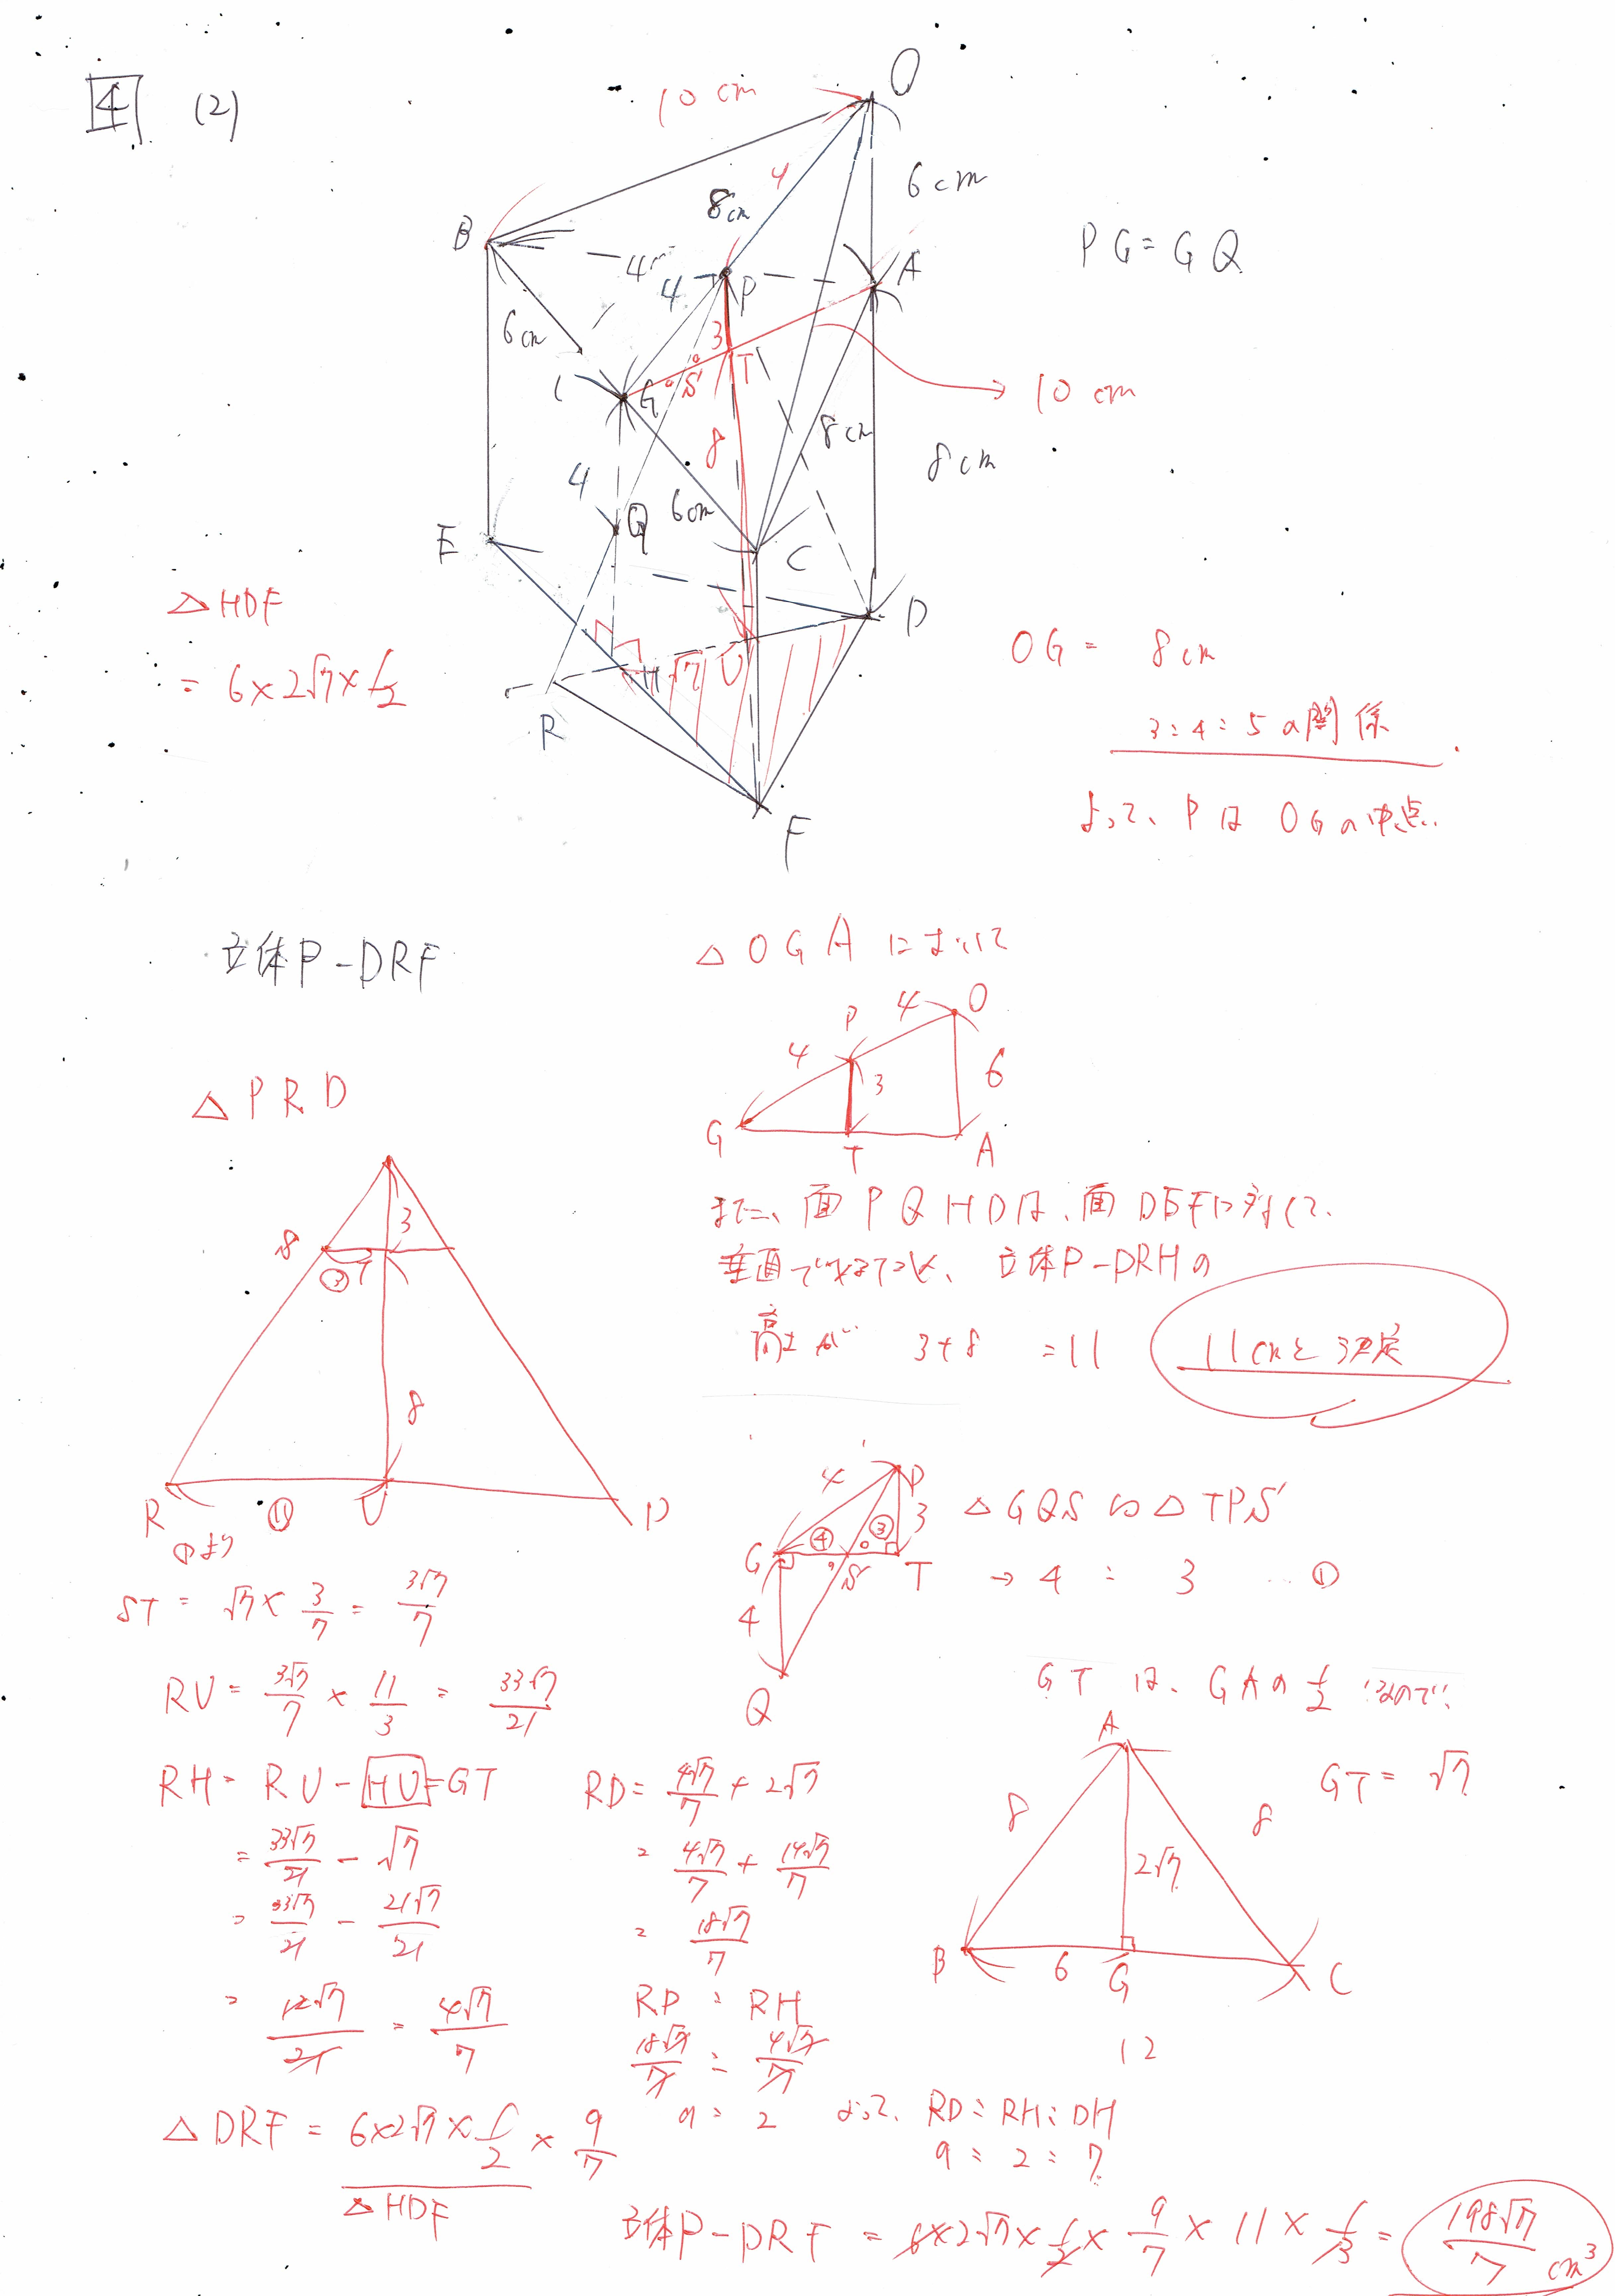 4 (2)
O
10 cm
6cm
8cm
4
B
A
PG=GQ
4
4
P
6cm
3
T
G
S
10 cm
8cm
8cm
8
4
6cm
Q
E
C
D
△HDF
= 6×2√7×1/2
H
√7
U
R
F
OG= 8cm
3:4:5の関係
よって、PはOGの中点.
立体P-DRF
△OGAにおいて
P
4
O
4
3
6
G
T
A
△PRD
3
S
③
T
8
R
①
U
D
また、面PQHDは、面DEFに対して、
垂直であるため、立体P-DRHの
高さが 3+8 =11
11cmと決定
4
P
3
④
③
G
S
T
4
Q
△GQS∽△TPS
→ 4 : 3 ①
①より
ST = √7× 3/7 = 3√7/7
RU= 3√7/7 × 11/3 = 33√7/21
GTは、GAの1/2なので、
GT= √7
A
8
8
2√7
B
6
G
C
12
RH= RU-HU=GT
= 33√7/21 - √7
= 33√7/21 - 21√7/21
= 12√7/21 = 4√7/7
RD= 4√7/7 + 2√7
= 4√7/7 + 14√7/7
= 18√7/7
RD : RH
18√7/7 : 4√7/7
9 : 2
よって、RD:RH:DH
9 : 2 : 7
△DRF = 6×2√7×1/2 × 9/7
△HDF
立体P-DRF = 6×2√7×1/2× 9/7 × 11 × 1/3 = 198√7/7 cm³